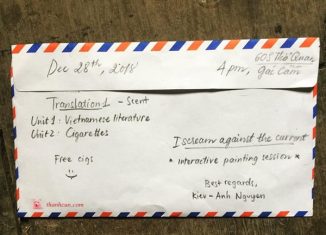 Dec 28th, 2018
60S Thổ Quan
4pm, Gác Cấm
Translation 1 - Scent
Unit 1: Vietnamese literature
Unit 2: Cigarettes
Free cigs
I scream against the current
* interactive painting session *
Best regards,
Kiều-Anh Nguyen
thanhcan.com